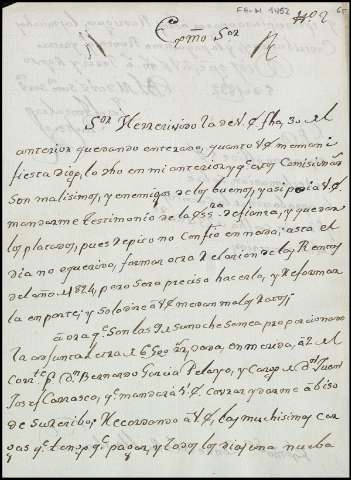 FA-M 1452
Nº 2
Exmo Sor
Sor He recivido la de V. E. fha, 30 del
anterior quedando enterado, quanto V. E. me mani
fiesta digo, lo dho en mi anterior y qe esos Comisionos
Son malisimos, y enemigos de los buenos, y asi pedia a V. E.
mandarme testimonio de la Essra de fianza, y quedar
los placados, pues de pico no Confio en nada: asta el
dia no e querido, formar otra Relacion de las Rentas
del año de 1824, pero sera preciso hacerla, y Reformar
la en parte, y solo dire a V. E. me dan malos ratos;
aora qe Son las 9 de su noche se me a proporcionado
la adjunta letra
Corrte pr Dn Bernardo Garcia Pelayo, y Cargo de Dn Juan
Josef Carrasco, qe mandará V. E. Covrar y darme abiso
de su recibo; Recordando a V. E. los muchisimos car
gas qe tengo qe pagar, y todos los dias una nueba